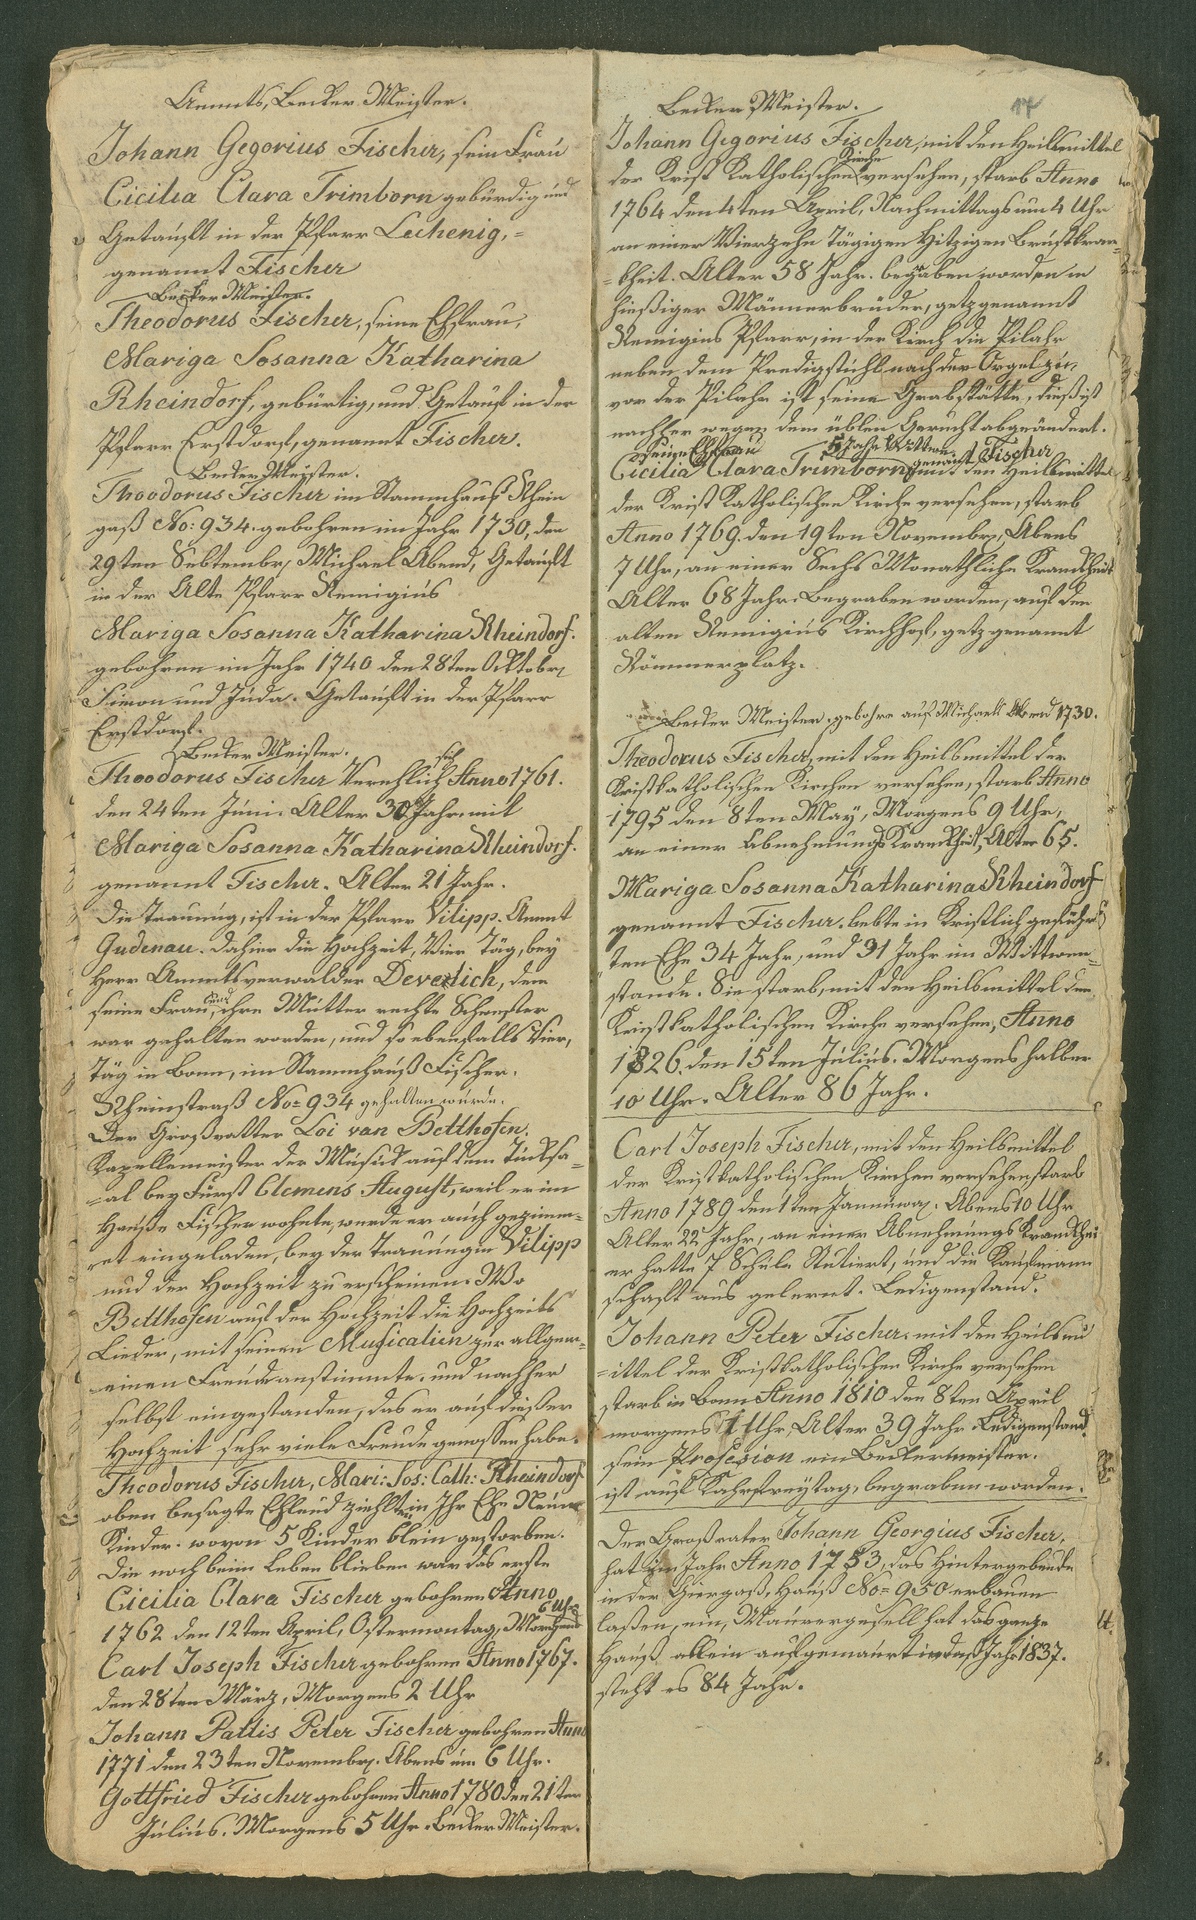 Ammts, Becker Meister.
Johann Gegorius Fischer, sein Frau
Cicilia Clara Trimborn gebürdig und
Getauft in der Pfarr Lechenig,=
genannt Fischer
Becker Meister.
Theodorus Fischer, seine Ehfrau,
Mariga Sosanna Katharina
Rheindorf, gebürtig, und Getauf in der
Pfarr Erstdorf, genannt Fischer.
Becker Meister.
Theodorus Fischer im Stammhauß Rhein
gaß No: 934. gebohren im Jahr 1730, den
29ten Sebtembr, Michael Abend, Getauft
in der Alte Pfarr Remigius
Mariga Sosanna Katharina Rheindorf.
gebohren im Jahr 1740 den 28ten Ocktobr,
Simon und Juda. Getauft in der Pfarr
Erstdorf.
Becker Meister.
Theodorus Fischer Verehlich sich Anno 1761.
den 24ten Juni. Alter 30 Jahr. mit
Mariga Sosanna Katharina Rheindorf.
genannt Fischer. Alter 21 Jahr.
Die Trauung, ist in der Pfarr Vilipp. Ammt
Gudenau. dahier die Hochzeit, Vier Täg, bey
Herr Ammtsverwalder Deverich, dem
seine Frau, und ihre Mutter rechte Schwester
war gehalten worden, und so ebenfalls Vier,
Täg in Bonn, im Stammhauß Fischer.
Rheinstraß No= 934 gehalten wurde.
Der Großvatter Loi van Betthofen.
Kapellemeister der Musick auf dem Tucksa=
=al bey Fürst Clemens August, weil er im
Hauße Fischer wohnte, wurde er auch gezimm=
ret eingeladen, bey der Trauung in Vilipp
und der Hochzeit zu erscheinen. Wo
Betthofen auf der Hochzeit die Hochzeits
Lieder, mit seinen Musicalien zur allgem=
einen Freude anstimmte. und nachher
selbst eingestanden, das er auf dießer
Hochzeit sehr viele Freude genossen habe.
Theodorus Fischer, Mari: Sos: Cath: Rheindorf
oben besagte Ehleud ziehlten in Ihr Ehe Neun
Kinder. wovon 5 Kinder klein gestorben.
Die noch beim Leben blieben war das erste
Cicilia Clara Fischer gebohren Anno
1762 den 12ten April, Ostermontag, Morgens 6 Uhr
Carl Joseph Fischer gebohren Anno 1767.
den 28ten März, Morgens 2 Uhr
Johann Pattis Peter Fischer gebohren Anno
1771 den 23ten Novembr. Abens um 6 Uhr.
Gottfried Fischer gebohren Anno 1780 den 21ten
Julius. Morgens 5 Uhr. Becker Meister.
17
Becker Meister.
Johann Gegorius Fischer, mit den Heilsmittel
der Krist Katholischen Kirche versehen, starb Anno
1764 den 4ten April, Nachmittags um 4 Uhr
an einer Vierzehn Tägigen Hitzigen Brustkran=
=kheit. Alter 58 Jahr. begraben worden in
hießiger Männerbrüder, getz genannt
Remigius Pfarr, in der Kirch die Pilahr
neben dem Predigstuhl nach der Orgel zu,
vor der Pilahr ist seine Grabstätte, dieß ist
nachher wegen dem üblen Geruch abgeändert.
seine Ehfrau 5 Jahr Wittwe.
Cicilia Clara Trimborn genant Fischer mit den Heilsmittel
der Krist Katholischen Kirche versehen, starb
Anno 1769. den 19ten Novembr, Abens
7 Uhr, an einer Sechs Monathliche Krankheit
Alter 68 Jahr. Begraben worden, auf den
alten Remigius Kirchhof, getz genannt
Römmerplatz.
Becker Meister, gebohre auf Michaels Abend 1730.
Theodorus Fischer, mit den Heilsmittel der
Kristkatholischen Kirchen versehen, starb Anno
1795 den 8ten May, Morgens 9 Uhr,
an einer Abnehmungs Krankheit, Alter 65.
Mariga Sosanna Katharina Rheindorf
genannt Fischer. lebte in Kristlich geführ=
ten Ehe 34 Jahr, und 31 Jahr im Wittwen=
stande. Sie starb, mit den Heilsmittel der
Kristkatholischen Kirche versehen, Anno
1826. den 15ten Julius. Morgens halber
10 Uhr. Alter 86 Jahr.
Carl Joseph Fischer, mit den Heilsmittel
der Kristkatholischen Kirchen versehen starb
Anno 1789 den 1ten Jannuwar. Abens 10 Uhr
Alter 22 Jahr, an einer Abnehmungs Krankhei
er hatte 7 Schule Stutiert, und die Kaufmann
schaft aus gelernt. Ledigenstand.
Johann Peter Fischer. mit den Heilsm
=ittel der Kristkatholischen Kirche versehen
starb in Bonn Anno 1810 den 8ten April
morgens 1 Uhr, Alter 39 Jahr Ledigenstand.
sein Profesion ein Beckermeister.
ist auf Kahrfreytag, begraben worden.
Der Großvater Johann Georgius Fischer,
hat im Jahr Anno 1753, das Hintergebäude
in der Giergaß, Hauß No= 950 erbauen
laßen, ein, Maurergesell hat das ganze
Hauß allein aufgemaurt in daß Jahr 1837.
steht es 84 Jahr.